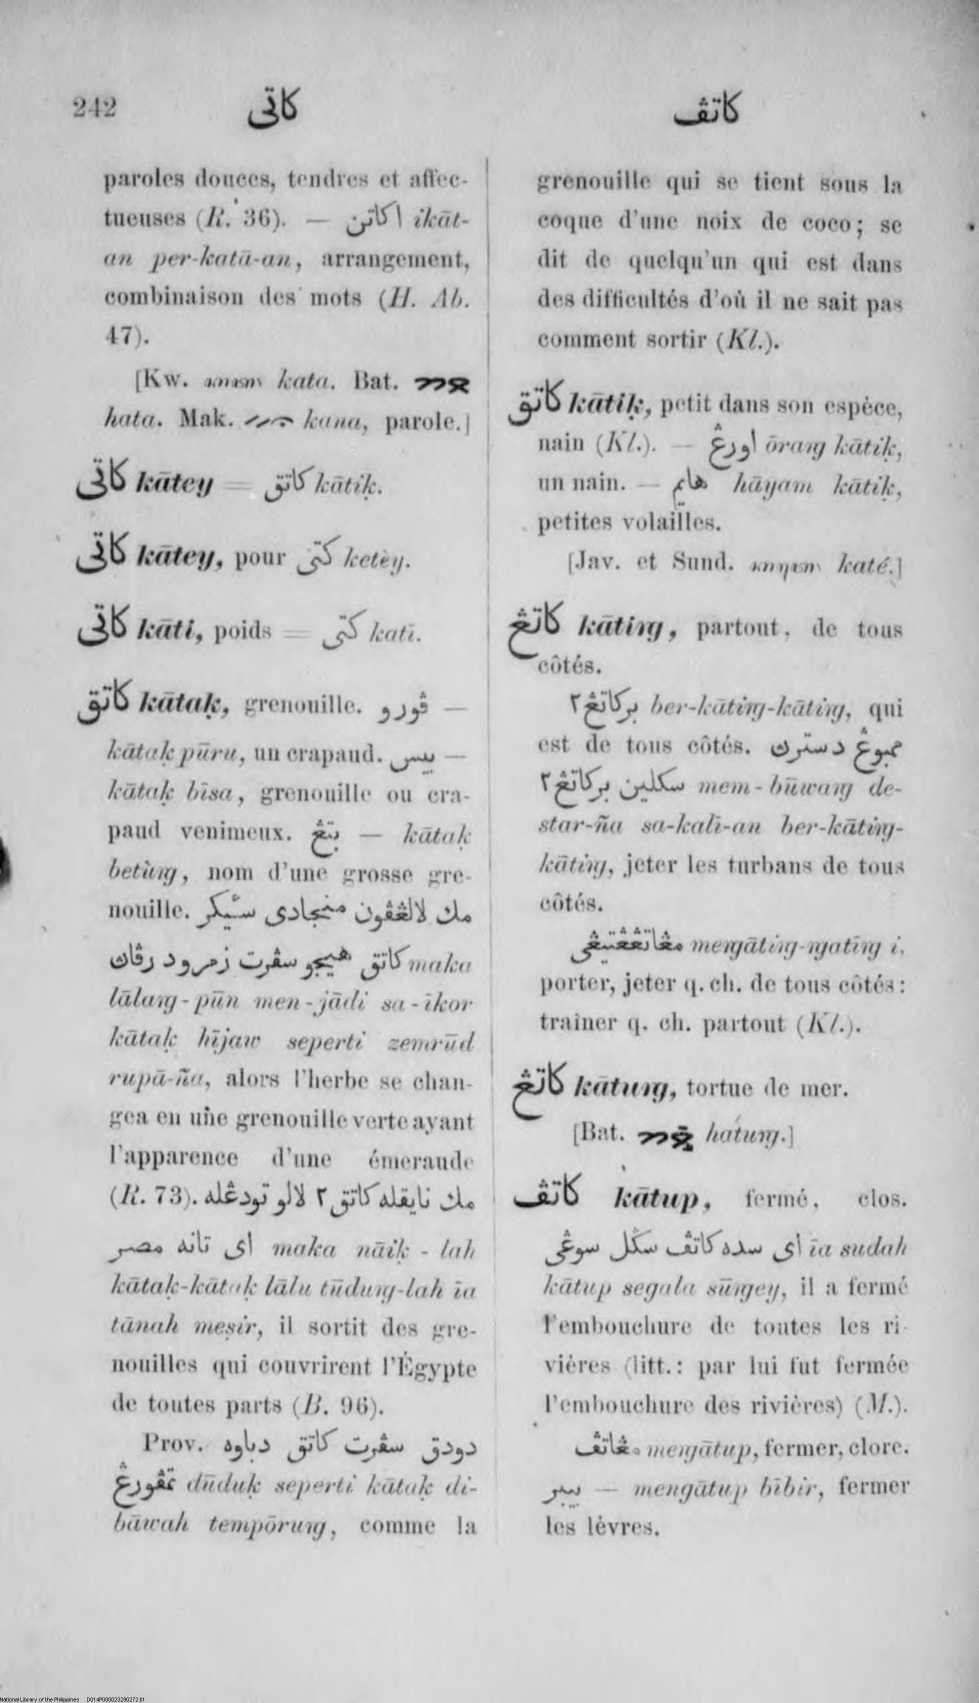 242
كاتى
كاتڤ
paroles douces, tendres et affec-
tueuses (R. 36). — اكاتن ikāt-
an per-katā-an, arrangement,
combinaison des mots (H. Ab.
47).
[Kw. kata. Bat.
hata. Mak. kana, parole.]
كاتى kātey = كاتق kātiḳ.
كاتى kātey, pour كتى ketèy.
كاتى kāti, poids = كتى katī.
كاتق kātaḳ, grenouille. ڤورو —
kātaḳ pūru, un crapaud. بيس —
kātaḳ bīsa, grenouille ou cra-
paud venimeux. بتڠ — kātaḳ
betùng, nom d'une grosse gre-
nouille. مك لالڠڤون منجادى سئيكر
كاتق هيجو سڤرت زمرود رڤاڽ maka
lālang-pūn men-jādi sa-īkor
kātaḳ hījaw seperti zemrūd
rupā-ña, alors l'herbe se chan-
gea en une grenouille verte ayant
l'apparence d'une émeraude
(R. 73). مك نايقله كاتق٢ لالو تودڠله
اى تانه مصر maka nāiḳ-lah
kātaḳ-kātaḳ lālu tūdung-lah īa
tānah meṣir, il sortit des gre-
nouilles qui couvrirent l'Égypte
de toutes parts (B. 96).
Prov. دودق سڤرت كاتق دباوه
تمڤورڠ dūduḳ seperti kātaḳ di-
bāwah tempōrung, comme la
grenouille qui se tient sous la
coque d'une noix de coco; se
dit de quelqu'un qui est dans
des difficultés d'où il ne sait pas
comment sortir (Kl.).
كاتق kātiḳ, petit dans son espèce,
nain (Kl.). — اورڠ ōrang kātiḳ,
un nain. — هايم hāyam kātiḳ,
petites volailles.
[Jav. et Sund. katé.]
كاتڠ kāting, partout, de tous
côtés.
بركاتڠ٢ ber-kāting-kāting, qui
est de tous côtés. ممبوڠ دسترڽ
سكلين بركاتڠ٢ mem-būwang de-
star-ña sa-kalī-an ber-kāting-
kāting, jeter les turbans de tous
côtés.
مڠاتڠڠتيڠى mengāting-ngatīng i,
porter, jeter q. ch. de tous côtés:
traîner q. ch. partout (Kl.).
كاتڠ kātung, tortue de mer.
[Bat. hatung.]
كاتڤ kātup, fermé, clos.
اى سده كاتڤ سڬل سوڠى īa sudah
kātup segala sūngey, il a fermé
l'embouchure de toutes les ri-
vières (litt.: par lui fut fermée
l'embouchure des rivières) (M.).
مڠاتڤ mengātup, fermer, clore.
بيبر — mengātup bībir, fermer
les lèvres.
National Library of the Philippines